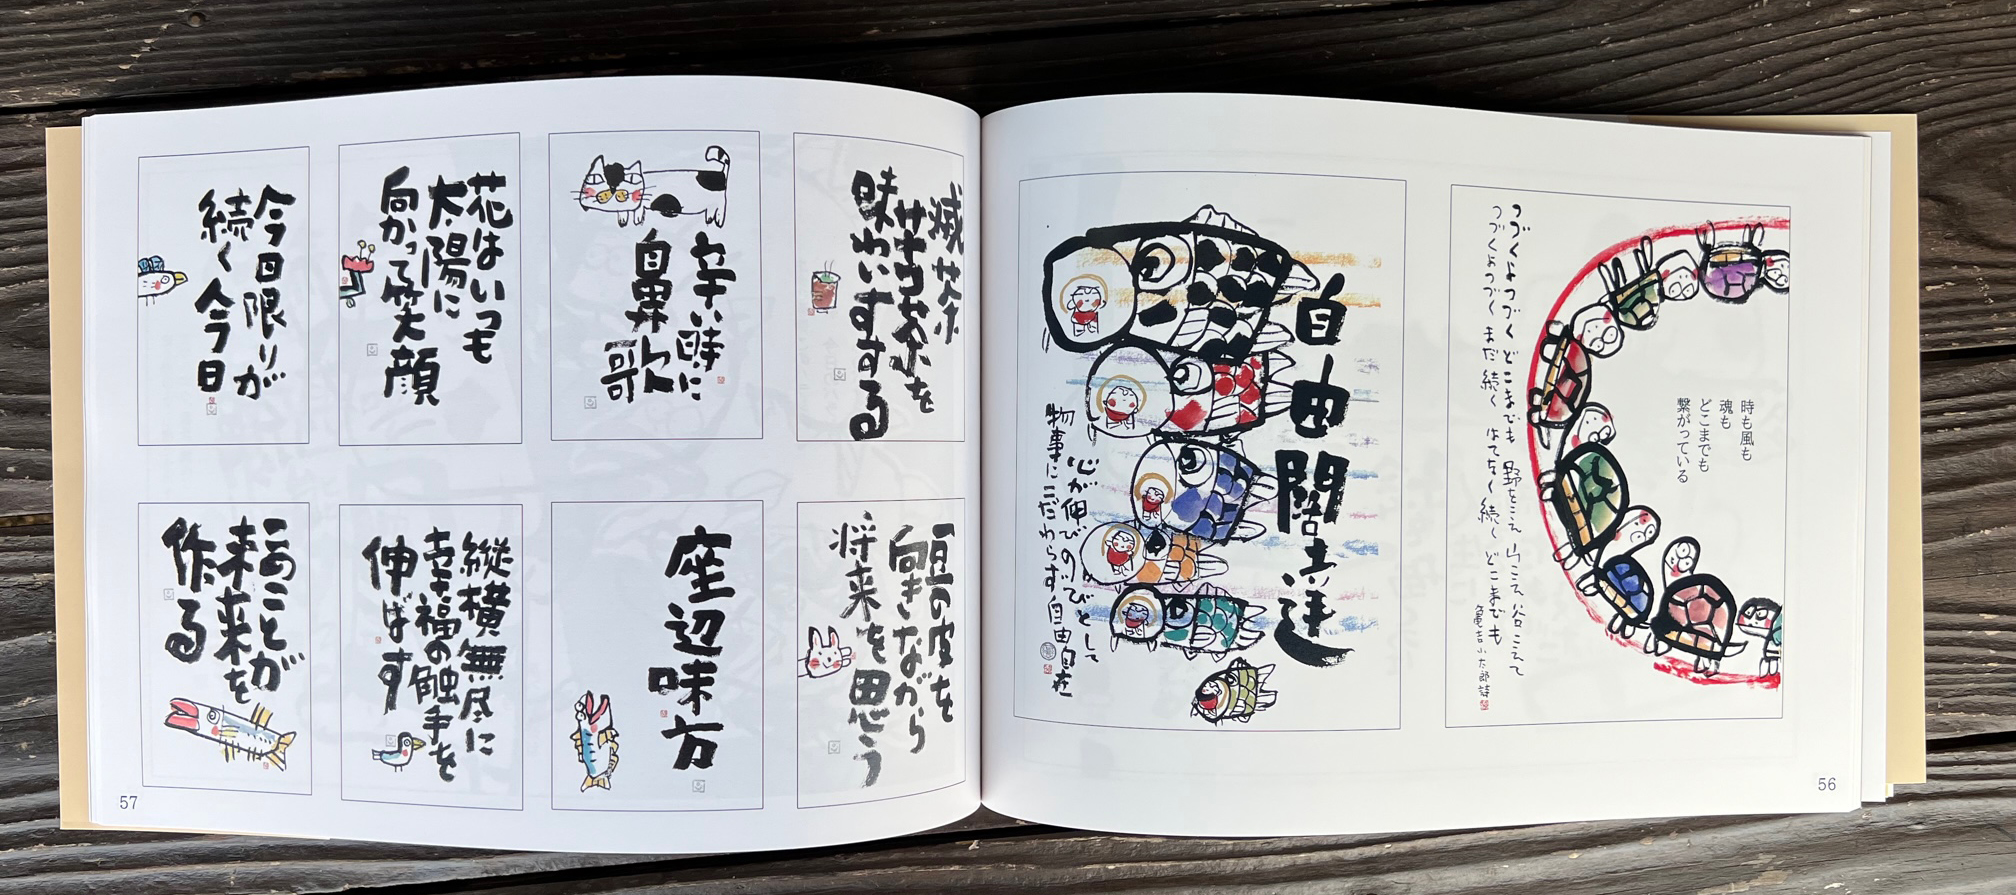 時も風も
魂も
どこまでも
繋がっている
つづくよつづく どこまでも 野をこえ 山こえ 谷こえて
つづくよつづく まだ続く はてなく続く どこまでも
亀吉小太郎詩
56
自由闊達
心が伸びのびとして
物事にこだわらず自由自在
減茶
苦茶を
味わいすする
辛い時に
鼻歌
花はいつも
太陽に
向かって笑顔
今日限りが
続く今日
豆の皮を
向きながら
将来を思う
座辺味方
縦横無尽に
幸福の触手を
伸ばす
このことが
未来を
作る
57